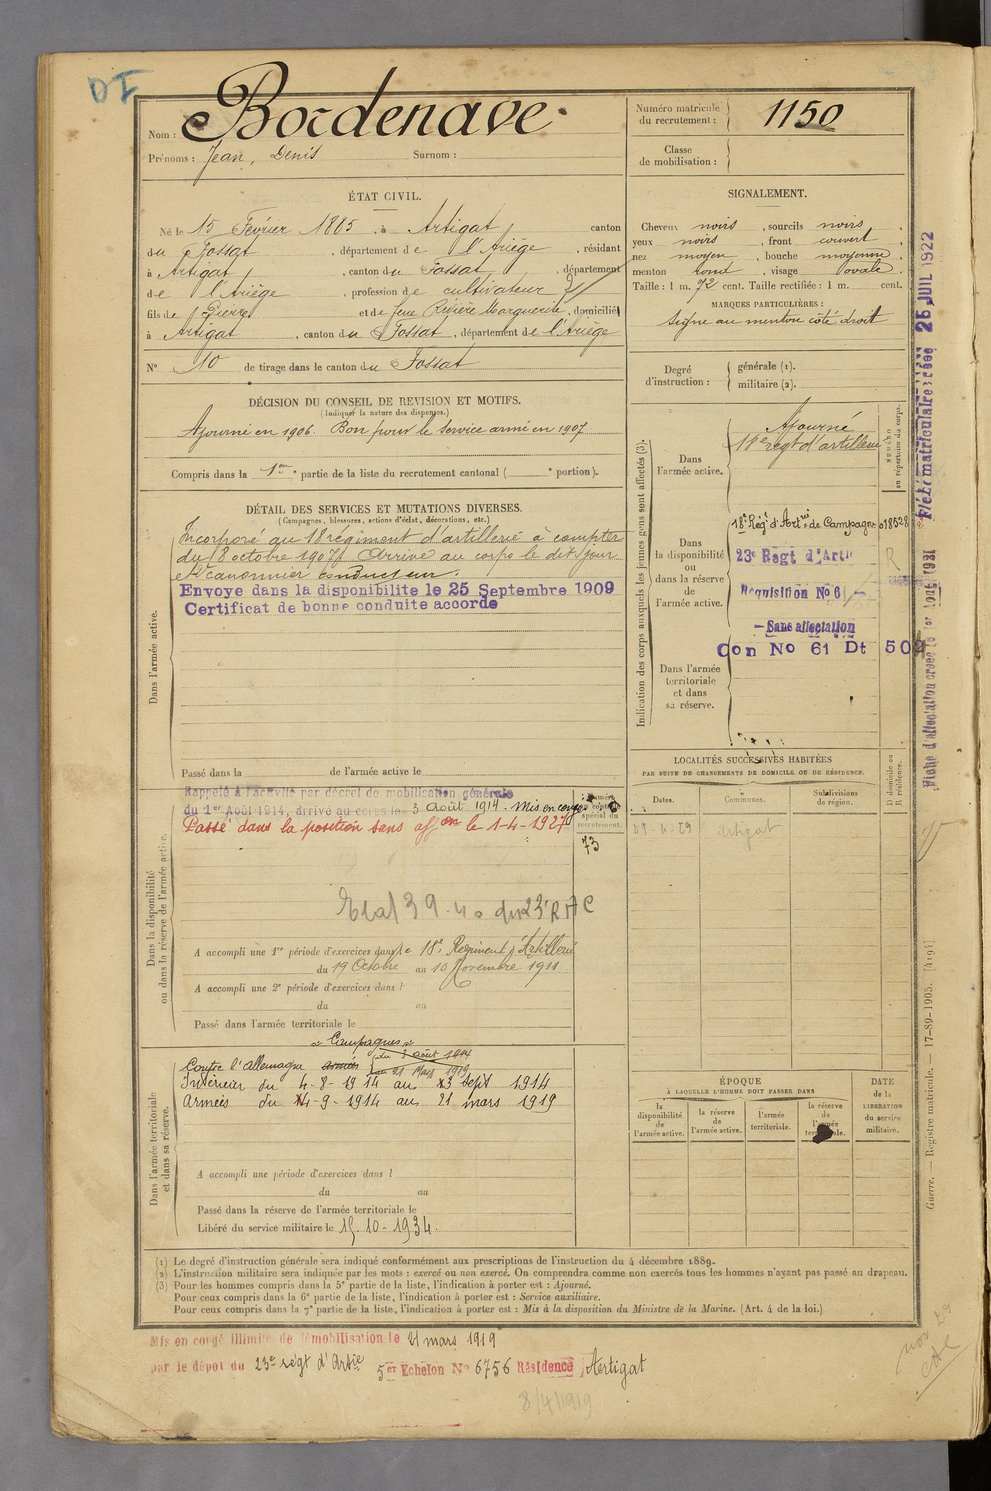 DI
Nom : Bordenave
Prénoms : Jean, Denis Surnom :
Numéro matricule du recrutement : 1150
Classe de mobilisation :
ÉTAT CIVIL.
Né le 15 Février 1885, à Artigat, canton
du Fossat, département de l'Ariège, résidant
à Artigat, canton du Fossat, département
de l'Ariège, profession de cultivateur
fils de Pierre et de feue Rivière Marguerite, domiciliés
à Artigat, canton du Fossat, département de l'Ariège
N° 10 de tirage dans le canton du Fossat
SIGNALEMENT.
Cheveux noirs, sourcils noirs,
yeux noirs, front couvert,
nez moyen, bouche moyenne,
menton rond, visage ovale.
Taille : 1 m. 72 cent. Taille rectifiée : 1 m. cent.
MARQUES PARTICULIÈRES :
Signe au menton côté droit
Degré d'instruction :
générale (1).
militaire (2).
DÉCISION DU CONSEIL DE REVISION ET MOTIFS.
(Indiquer la nature des dispenses.)
Ajourné en 1906. Bon pour le service armé en 1907
Compris dans la 1ere partie de la liste du recrutement cantonal ( ° portion).
DÉTAIL DES SERVICES ET MUTATIONS DIVERSES.
(Campagnes, blessures, actions d'éclat, décorations, etc.)
Dans l'armée active.
Incorporé au 18 régiment d'artillerie à compter
du 8 octobre 1907. Arrivé au corps le dit jour
et 2e canonnier conducteur.
Envoye dans la disponibilite le 25 Septembre 1909
Certificat de bonne conduite accorde
Passé dans la de l'armée active le
Indication des corps auxquels les jeunes gens sont affectés (3).
NUMÉRO au répertoire du corps.
Dans l'armée active.
Ajourné
18e regt d'artillerie
Dans la disponibilité ou dans la réserve de l'armée active.
18e Régt d'Artrie de Campagne 018528
23e Regt d'Artie
R
Requisition No 6
Sans affectation
Con No 61 Dt 502
Dans l'armée territoriale et dans sa réserve.
LOCALITÉS SUCCESSIVES HABITÉES
PAR SUITE DE CHANGEMENTS DE DOMICILE OU DE RÉSIDENCE.
Dates. Communes. Subdivisions de région. D domicile ou R résidence.
Artigat
Dans la disponibilité ou dans la réserve de l'armée active.
Rappelé à l'activité par décret de mobilisation générale
du 1er Août 1914, arrivé au corps le 3 Août 1914. Mis en congé
Passé dans la position sans affon le 1-4-1927
73
23e RAC
A accompli une 1re période d'exercices dans le 18e Régiment d'Artillerie
du 19 Octobre au 10 Novembre 1911
A accompli une 2e période d'exercices dans l
du au
Passé dans l'armée territoriale le
Dans l'armée territoriale et dans sa réserve.
Campagnes
Contre l'Allemagne armées du 3 août 1914
au 21 Mars 1919
Intérieur du 4-8-1914 au 13 Sept 1914
Armées du 14-9-1914 au 21 mars 1919
A accompli une période d'exercices dans l
du au
Passé dans la réserve de l'armée territoriale le
Libéré du service militaire le 15-10-1934.
ÉPOQUE
À LAQUELLE L'HOMME DOIT PASSER DANS
la disponibilité de l'armée active.
la réserve de l'armée active.
l'armée territoriale.
la réserve de l'armée territoriale.
DATE de la LIBÉRATION du service militaire.
(1) Le degré d'instruction générale sera indiqué conformément aux prescriptions de l'instruction du 4 décembre 1889.
(2) L'instruction militaire sera indiquée par les mots : exercé ou non exercé. On comprendra comme non exercés tous les hommes n'ayant pas passé au drapeau.
(3) Pour les hommes compris dans la 5e partie de la liste, l'indication à porter est : Ajourné.
Pour ceux compris dans la 6e partie de la liste, l'indication à porter est : Service auxiliaire.
Pour ceux compris dans la 7e partie de la liste, l'indication à porter est : Mis à la disposition du Ministre de la Marine. (Art. 4 de la loi.)
Mis en congé illimité de démobilisation le 21 mars 1919
par le dépot du 23e régt d'Artie 5er Echelon No 6756 Résidence Artigat
8/4/1919
25 JUIL 1922
Guerre. — Registre matricule. — 17-89-1905. [4194]